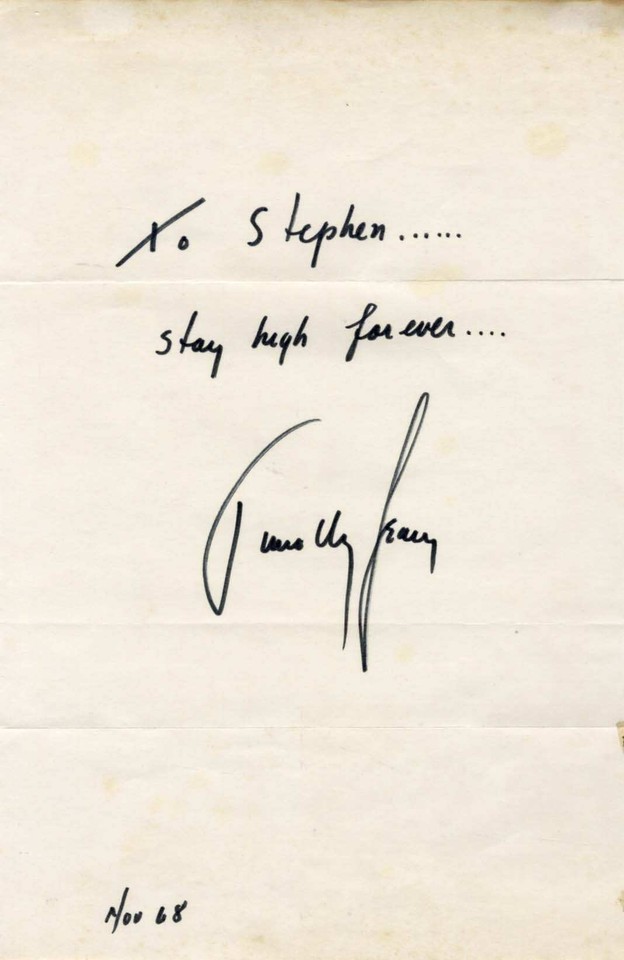 To Stephen......
stay high forever....
Timothy Leary
Nov 68